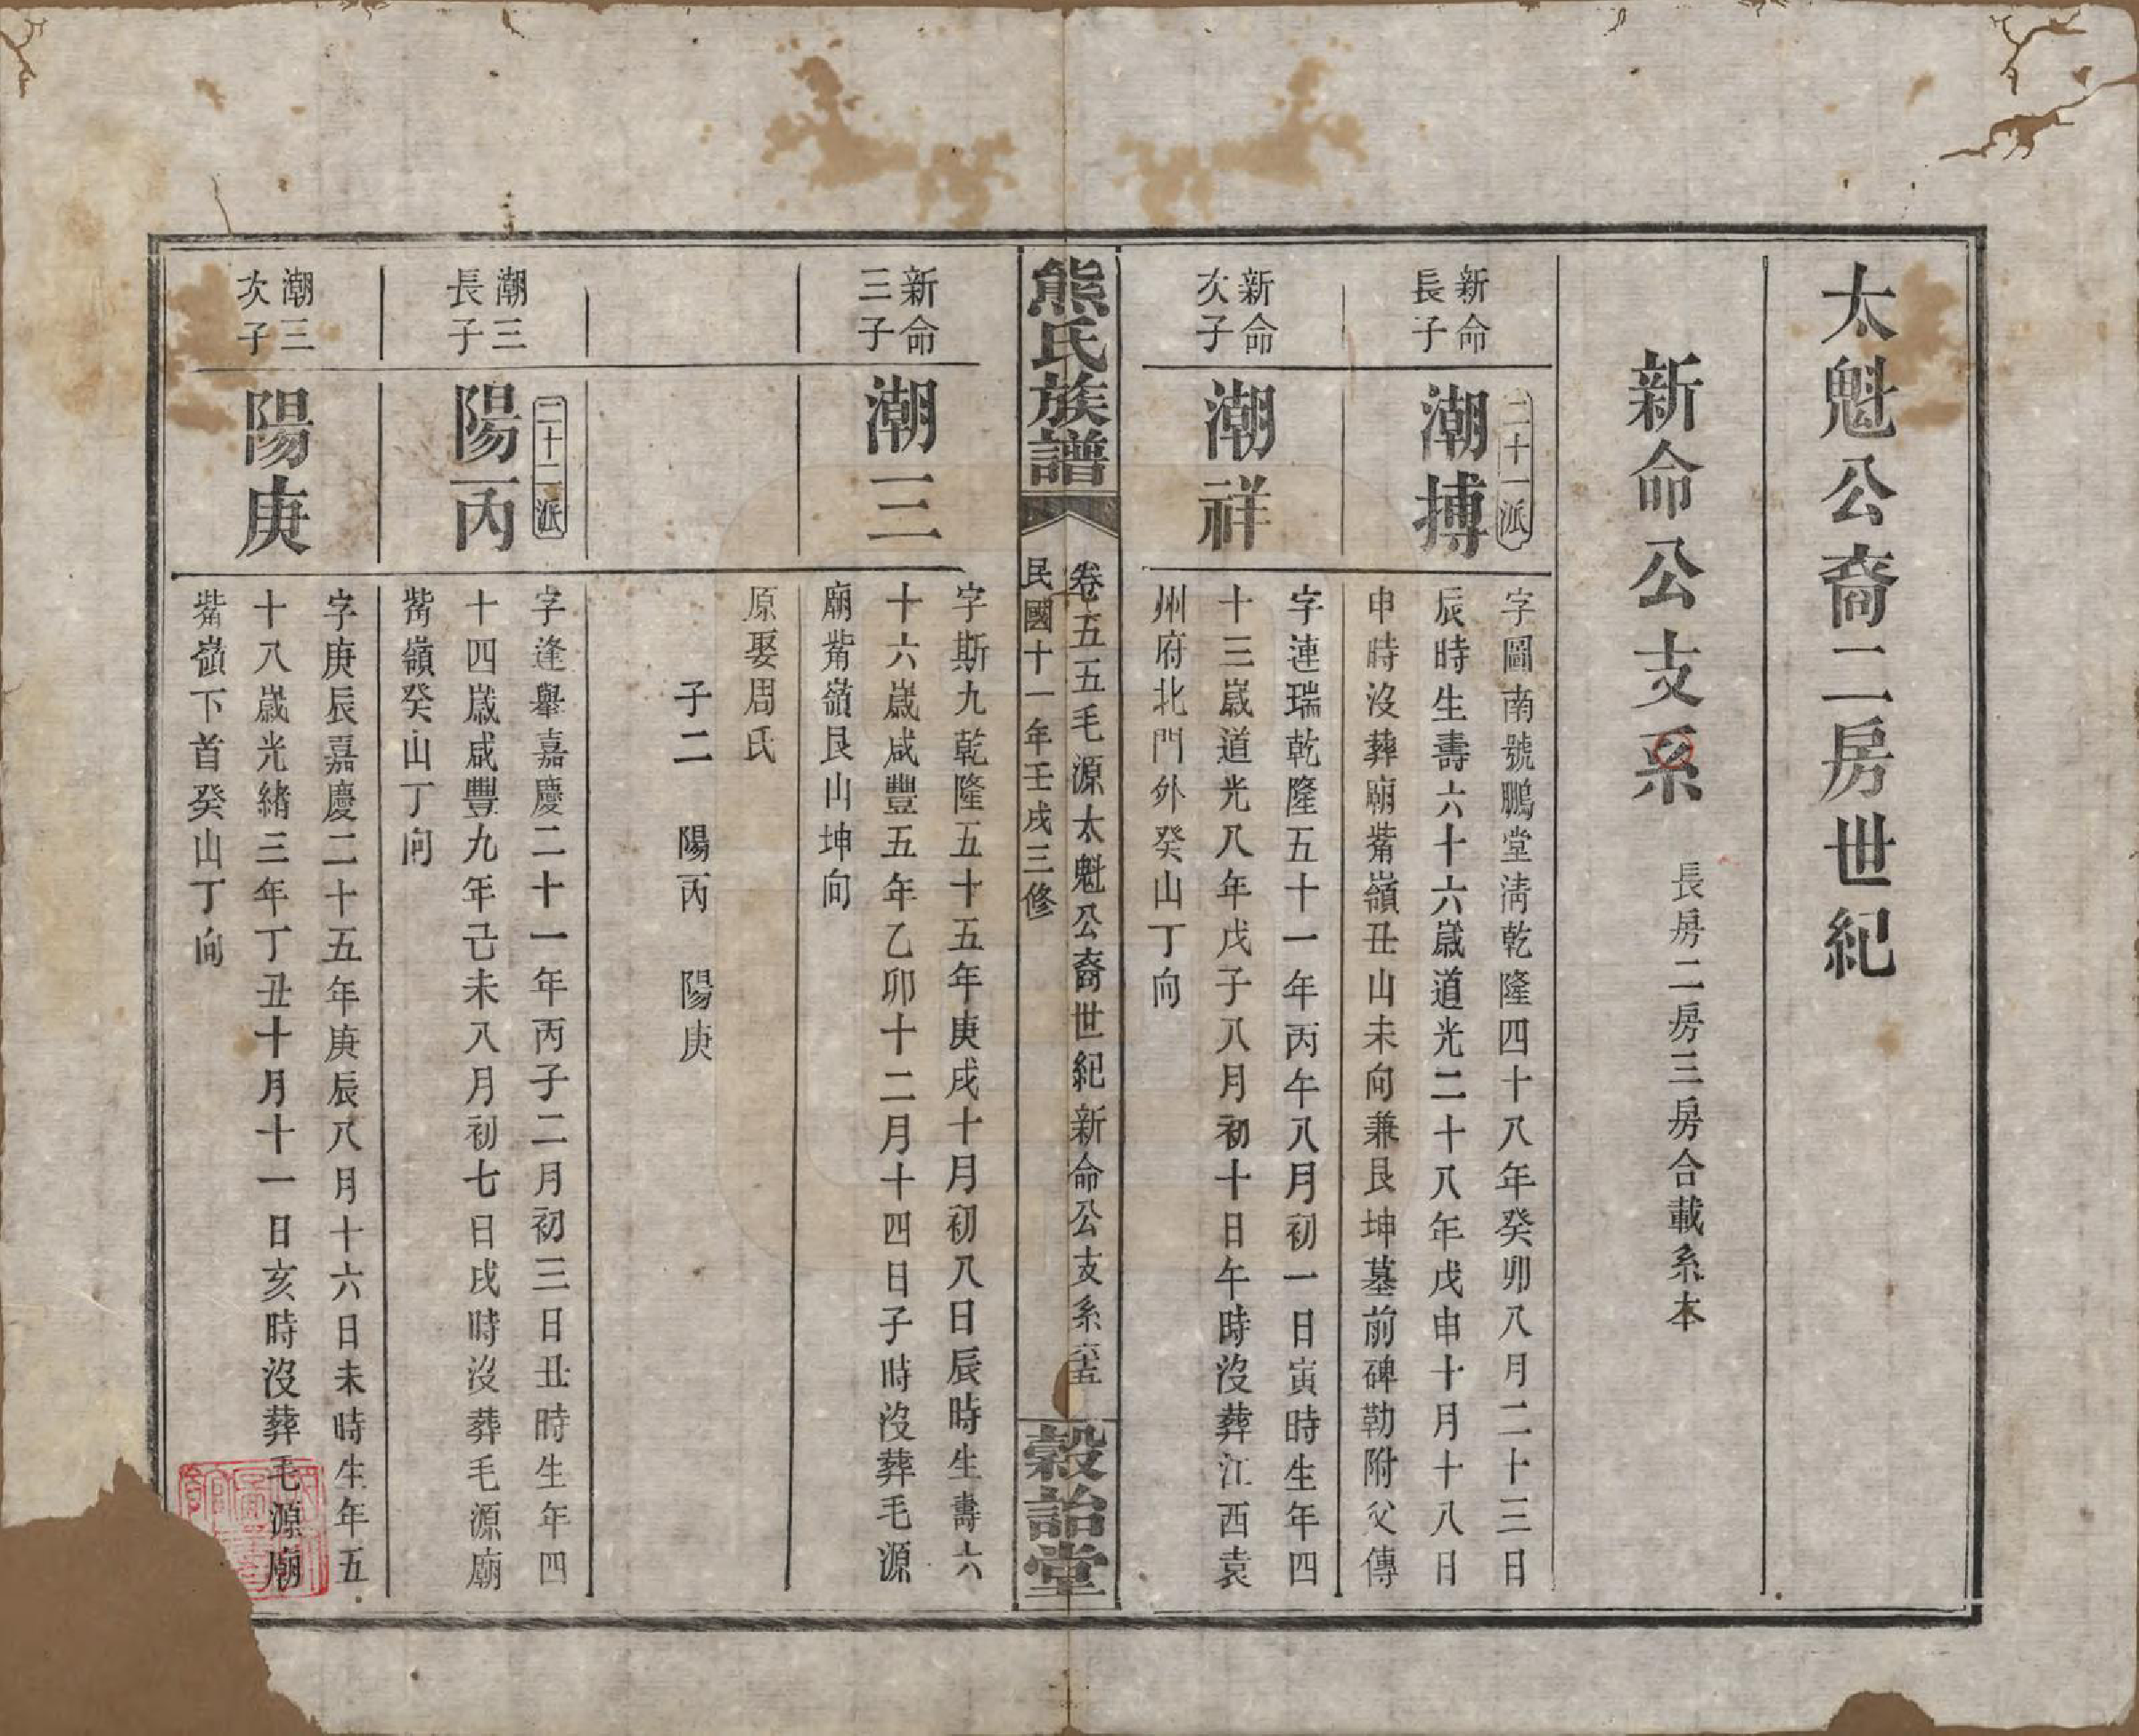 太魁公裔二房世紀
新命公支系 長房二房三房合載系本
新命
長子
二十一派
潮摶
字圖南號鵬堂淸乾隆四十八年癸卯八月二十三日
辰時生壽六十六歲道光二十八年戊申十月十八日
申時沒葬廟觜嶺丑山未向兼艮坤墓前碑勒附父傳
新命
次子
潮祥
字連瑞乾隆五十一年丙午八月初一日寅時生年四
十三歲道光八年戊子八月初十日午時沒葬江西袁
州府北門外癸山丁向
熊氏族譜
卷五五毛源太魁公裔世紀新命公支系
民國十一年壬戌三修
穀詒堂
新命
三子
潮三
字斯九乾隆五十五年庚戌十月初八日辰時生壽六
十六歲咸豐五年乙卯十二月十四日子時沒葬毛源
廟觜嶺艮山坤向
原娶周氏
子二 陽丙 陽庚
潮三
長子
二十二派
陽丙
字逢舉嘉慶二十一年丙子二月初三日丑時生年四
十四歲咸豐九年己未八月初七日戌時沒葬毛源廟
觜嶺癸山丁向
潮三
次子
陽庚
字庚辰嘉慶二十五年庚辰八月十六日未時生年五
十八歲光緒三年丁丑十月十一日亥時沒葬毛源廟
觜嶺下首癸山丁向